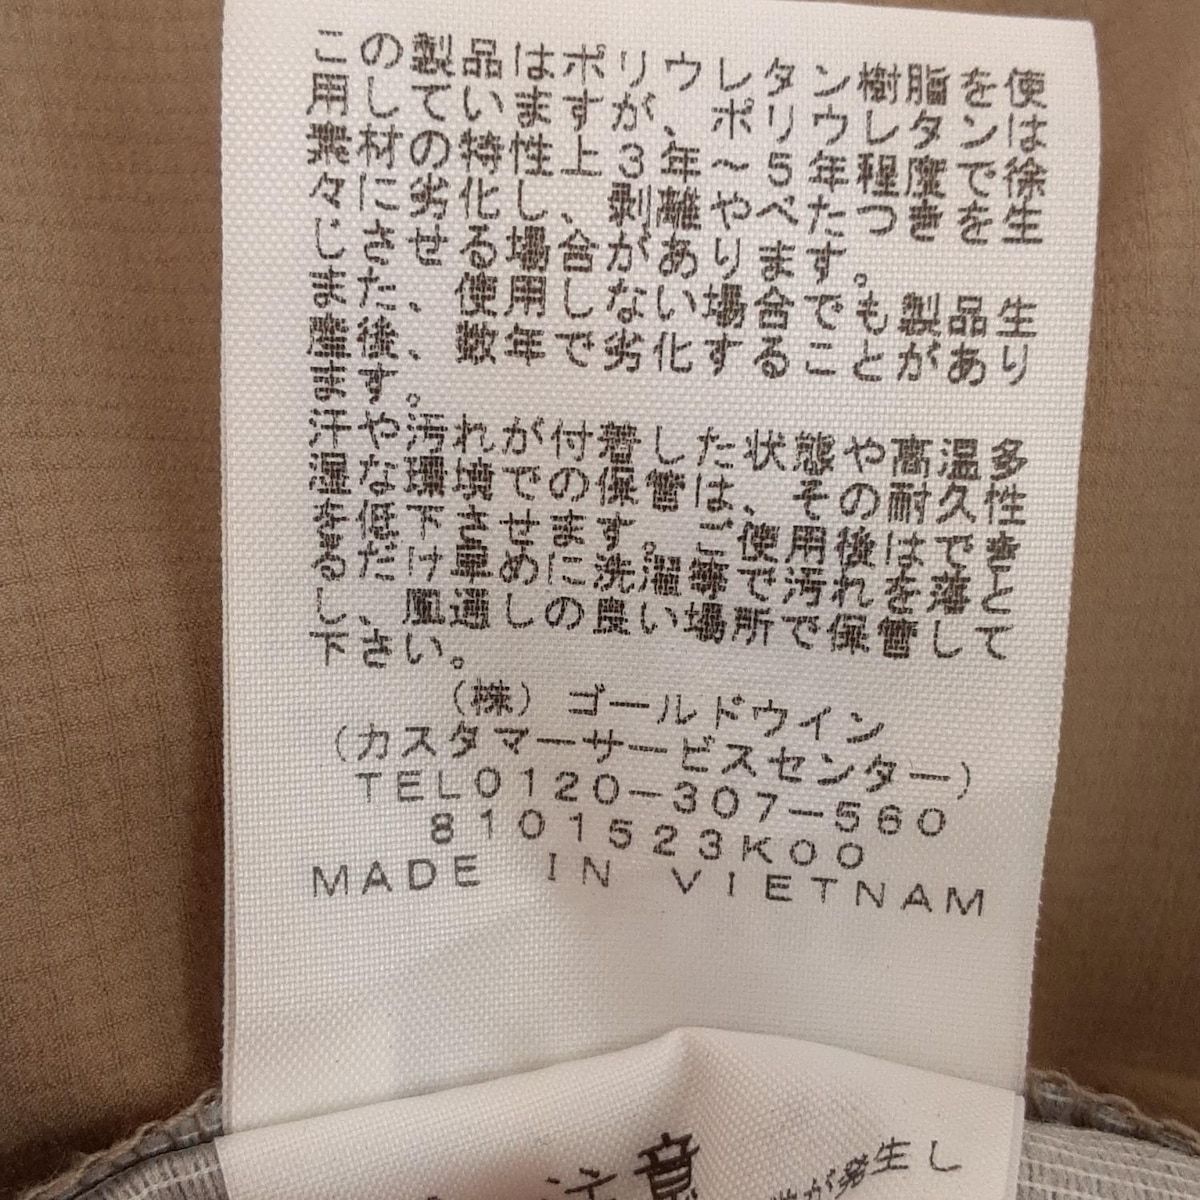 この製品はポリウレタン樹脂を使
用していますが、ポリウレタンは
素材の特性上3年～5年程度で徐
々に劣化し、剥離やべたつきを生
じさせる場合があります。
また、使用しない場合でも製品生
産後、数年で劣化することがあり
ます。
汗や汚れが付着した状態や高温多
湿な環境での保管は、その耐久性
を低下させます。ご使用後はでき
るだけ早めに洗濯等で汚れを落と
し、風通しの良い場所で保管して
下さい。
(株)ゴールドウイン
(カスタマーサービスセンター)
TEL0120-307-560
8101523K00
MADE IN VIETNAM
注意
が発生し